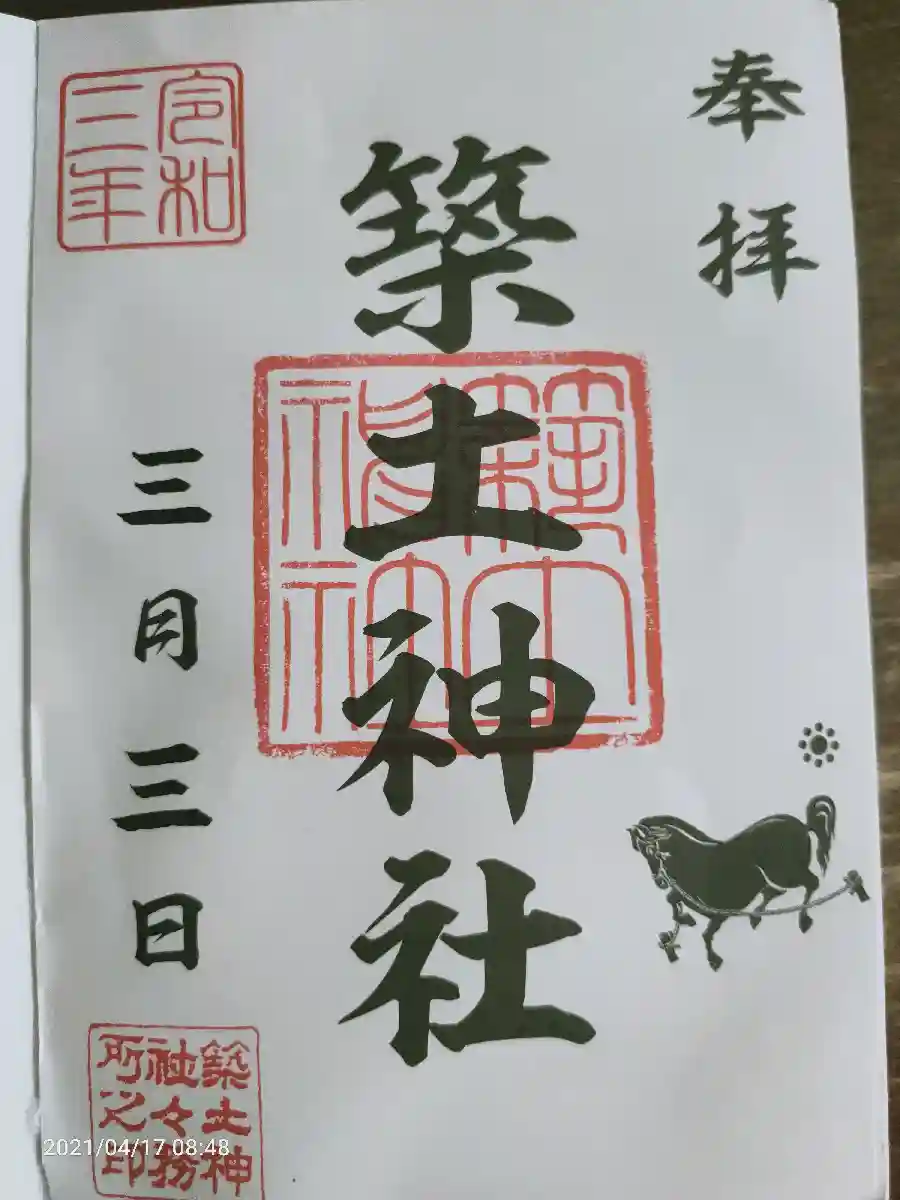 奉拝
築土神社
築土神社
令和三年
三月三日
築土神社々務所之印
2021/04/17 08:48